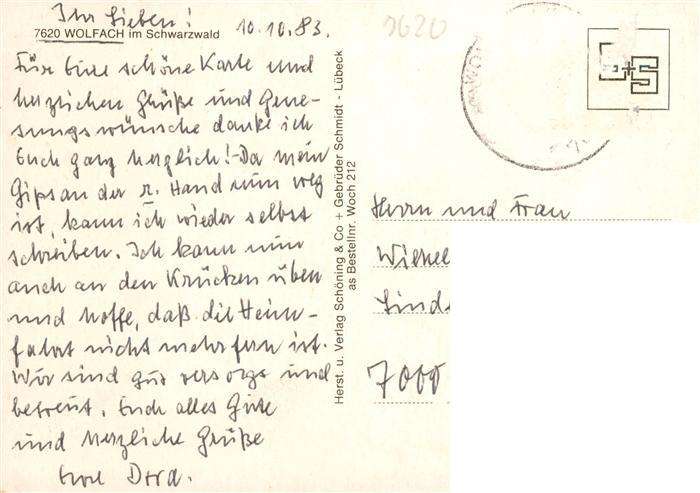 Ihr Lieben!
7620 WOLFACH im Schwarzwald 10.10.83.
Für Eure schöne Karte und
herzlichen Grüße und Gene-
sungswünsche danke ich
Euch ganz herzlich! - Da mein
Gips an der r. Hand nun weg
ist, kann ich wieder selbst
schreiben. Ich kann nun
auch an den Krücken üben
und hoffe, daß die Heim-
fahrt nicht mehr fern ist.
Wir sind gut versorgt und
betreut. Euch alles Gute
und herzliche Grüße
Eure Dora.
Herst. u. Verlag Schöning & Co + Gebrüder Schmidt - Lübeck
as Bestellnr. Woch 212
7620
S+S
Herrn und Frau
Lind
7000